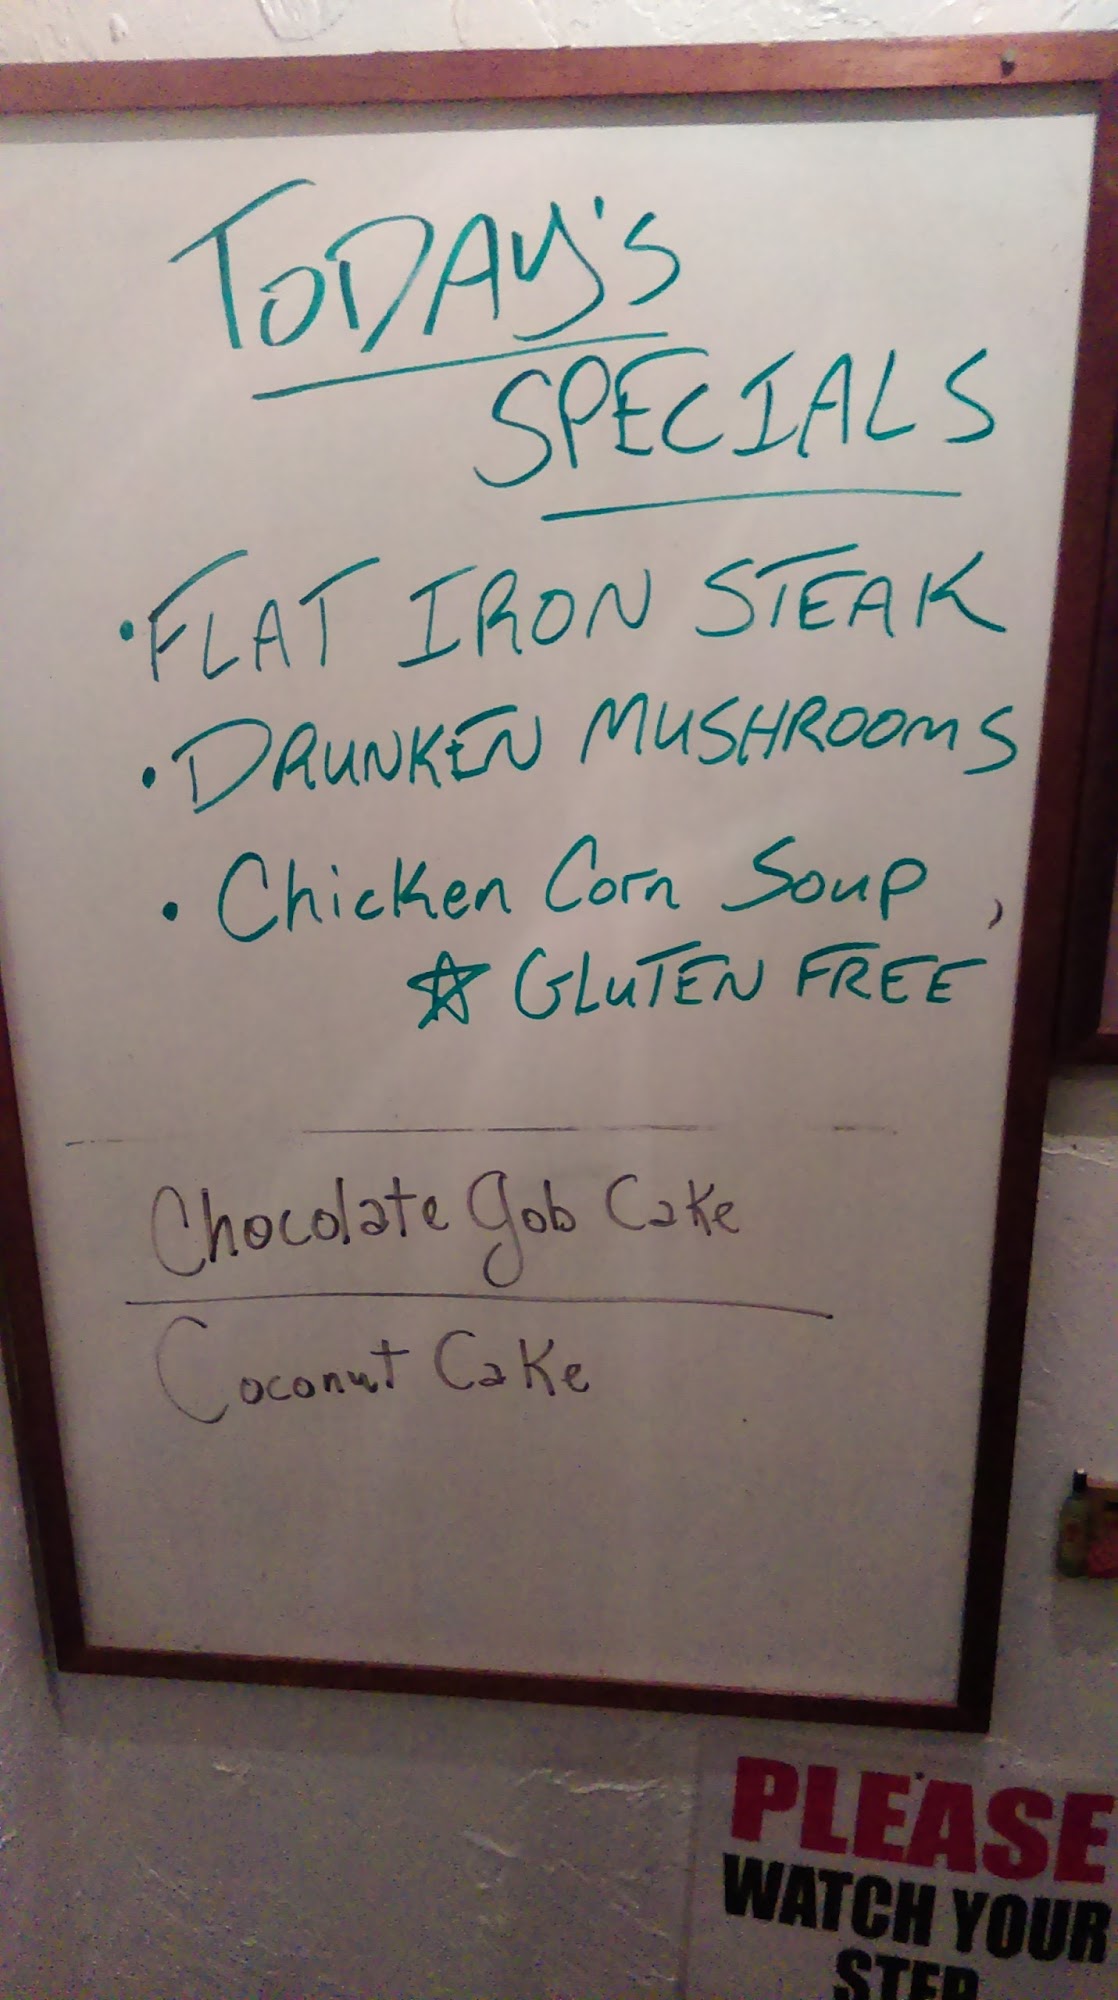 TODAY's
SPECIALS
• FLAT IRON STEAK
• DRUNKEN MUSHROOMS
• Chicken Corn Soup,
☆ GLUTEN FREE
Chocolate gob Cake
Coconut Cake
PLEASE
WATCH YOUR
STEP